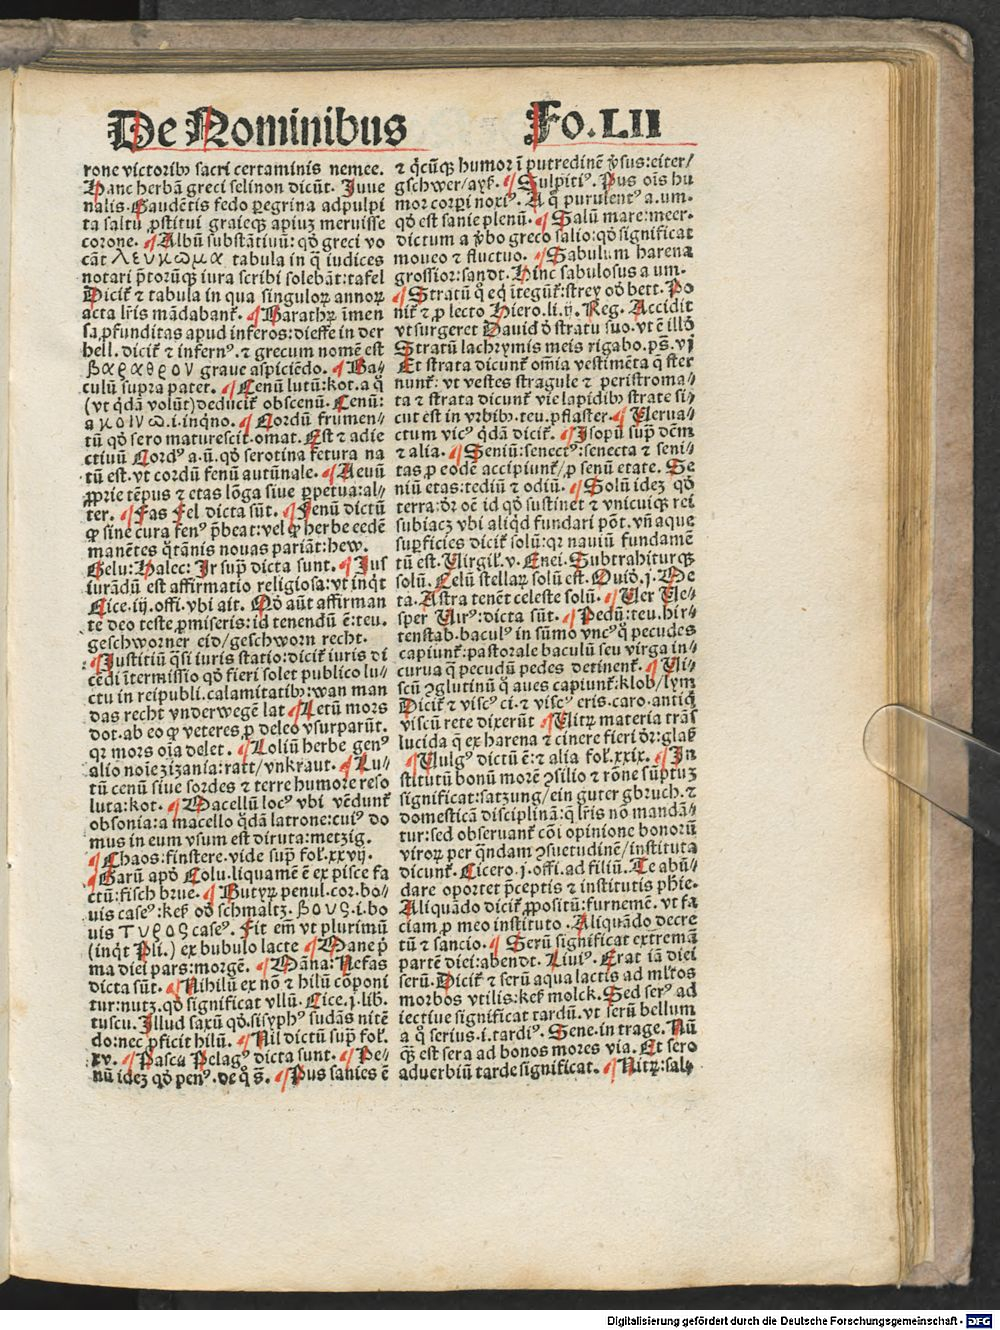 De Nominibus Fo. LII
rone victorib⁹ sacri certaminis nemee.
Hanc herbā greci selinon dicūt. Juue
nalis. Gaudētis fedo peregrina ad pulpi
ta saltu ꝓstitui graieqꝫ apiuꝫ meruisse
corone. ¶Albū substātiuū: qđ greci vo
cāt λευκωμα tabula in q̄ iudices
notari p̄torūqꝫ iura scribi solebāt: tafel
Dicit̄ ⁊ tabula in qua singuloꝝ annoꝝ
acta lr̄is mādabant̄. ¶Barathꝝ īmen
sa ꝓfunditas apud inferos: dieffe in der
hell. dicit̄ ⁊ infern⁹. ⁊ grecum nomē est
βαραθρον graue aspiciēdo. ¶Ba-
culū supra pater. ¶Cenū lutū: kot. a q̊
(vt q̄dā volūt) deducit̄ obscenū. Cenū:
a κοινω .i. inq̄no. ¶Cordū frumen-
tū qđ sero maturescit. omat. Est ⁊ adie
ctiuū Cord⁹ a. ū. qđ serotina fetura na
tū est. vt cordū fenū autūnale. ¶Aeuū
ꝓprie tēpus ⁊ etas lōga siue ꝑpetua: al-
ter. ¶Fas Fel dicta sūt. ¶Fenū dictū
ꝙ sine cura fen⁹ p̄beat: vel ꝙ herbe eedē
manētes q̊tānis nouas pariāt: hew.
Gelu: Halec: Ir sup̄ dicta sunt. ¶Jus
iurādū est affirmatio religiosa: vt inq̇t
Cice. iij. offi. vbi ait. Qđ aūt affirman
te deo teste ꝓmiseris: id tenendū ē: teu.
geschworner eid/geschworn recht.
¶Justitiū q̄si iuris statio: dicit̄ iuris di
cēdi ītermissio qđ fieri solet publico lu-
ctu in reipubli. calamitatib⁹: wan man
das recht vnderwegē lat ¶Letū mors
dot. ab eo ꝙ veteres ꝓ deleo vsurparūt.
qꝛ mors oīa delet. ¶Loliū herbe gen⁹
alio noīe zizania: ratt/vnkraut. ¶Lu-
tū cenū siue sordes ⁊ terre humore reso
luta: kot. ¶Macellū loc⁹ vbi vēdunt̄
obsonia: a macello q̄dā latrone: cui⁹ do
mus in eum vsum est diruta: metzig.
¶Chaos: finstere. vide sup̄ fol. xxvij.
¶Garū apđ Colu. liquamē ē ex pisce fa
ctū: fisch brue. ¶Butyꝝ penul. cor. bo-
uis case⁹: keß ođ schmaltz. βους .i. bo
uis τυρος case⁹. Fit em̄ vt plurimū
(inq̇t Pli.) ex bubulo lacte ¶Mane p̄
ma diei pars: morgē. ¶Māna: Nefas
dicta sūt. ¶Nihilū ex nō ⁊ hilū cōponi
tur: nutz. qđ significat vllū. Cice. j. lib.
tuscu. Illud saxū qđ sisyph⁹ sudās nitē
do: nec ꝓficit hilū. ¶Nil dictū sup̄ fol.
xv. ¶Pascu Pelag⁹ dicta sunt. ¶Pe-
nū ideꝫ qđ pen⁹. de q̊ s̄. ¶Pus sanies ē
⁊ q̊cūqꝫ humor ī putredinē v̄sus: eiter/
gschwer/ayß. ¶Sulpiti⁹. Pus oīs hu
mor corpri noxi⁹. A q̊ purulent⁹ a. um.
qđ est sanie plenū. ¶Salū mare: meer.
dictum a v̄bo greco salio: qđ significat
moueo ⁊ fluctuo. ¶Sabulum harena
grossior: sandt. Hinc sabulosus a um.
¶Stratū q̊ eq̊ īteguit̄: strey ođ bett. Po
nit̄ ⁊ ꝓ lecto Hiero. li. ij. Reg. Accidit
vt surgeret Dauid đ stratu suo. vt ē illđ
Stratū lachrymis meis rigabo. ps̄. vj
Et strata dicunt̄ om̄ia vestimēta q̄ ster
nunt̄: vt vestes stragule ⁊ peristroma-
ta ⁊ strata dicunt̄ vie lapidib⁹ strate si-
cut est in vrbib⁹. teu. pflaster. ¶Verua-
ctum vic⁹ q̄dā dicit̄. ¶Isopū sup̄ dc̄m
⁊ alia. ¶Seniū: senect⁹: senecta ⁊ seni-
tas ꝓ eodē accipiunt̄/ꝓ senū etate. Se
niū etas: tediū ⁊ odiū. ¶Solū ideꝫ qđ
terra: dr̄ oē id qđ sustinet ⁊ vnicuiqꝫ rei
subiacꝫ vbi aliq̇d fundari pōt. vn̄ aque
suꝑficies dicit̄ solū: qꝛ nauiū fundamē
tū est. Virgil. v. Enei. Subtrahiturqꝫ
solū. Celū stellaꝝ solū est. Ouiđ. j. Me
ta. Astra tenēt celeste solū. ¶Ver Ve-
sper Vir⁹: dicta sūt. ¶Pedū: teu. hir-
tenstab. bacul⁹ in sūmo vnc⁹ q̊ pecudes
capiunt̄: pastorale baculū seu virga in-
curua q̄ pecudū pedes detinent̄. ¶Vi-
scū ꝯglutinū q̊ aues capiunt̄: klob/lym
Dicit̄ ⁊ visc⁹ ci. ⁊ visc⁹ eris. caro. antiq̇
viscū rete dixerūt ¶Vitꝝ materia trās
lucida q̄ ex harena ⁊ cinere fieri dr̄: glaß
¶Vulg⁹ dictū ē: ⁊ alia fol. xxix. ¶In
stitutū bonū morē ꝯsilio ⁊ rōne sūptuꝫ
significat: satzung/ein guter gbruch. ⁊
domesticā disciplinā: q̄ lr̄is nō mandā-
tur: sed obseruant̄ cōi opinione bonorū
viroꝝ per q̄ndam ꝯsuetudinē/instituta
dicunt̄. Cicero. j. offi. ad filiū. Te abū-
dare oportet p̄ceptis ⁊ institutis phīe.
Aliquādo dicit̄ ꝓpositū: furnemē. vt fa
ciam ꝓ meo instituto. Aliquādo decre
tū ⁊ sancio. ¶Serū significat extremā
partē diei: abendt. Liui⁹. Erat iā diei
serū. Dicit̄ ⁊ serū aqua lactis ad ml̄tos
morbos vtilis: keß molck. Sed ser⁹ ad
iectiue significat tardū. vt serū bellum
a q̊ serius .i. tardi⁹. Sene. in trage. Nū
q̄ꝫ est sera ad bonos mores via. Et sero
aduerbiū tarde significat. ¶Nitꝝ: sal-
Digitalisierung gefördert durch die Deutsche Forschungsgemeinschaft - DFG